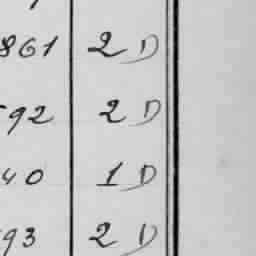 861 2 D
92 2 D
40 1 D
93 2 D